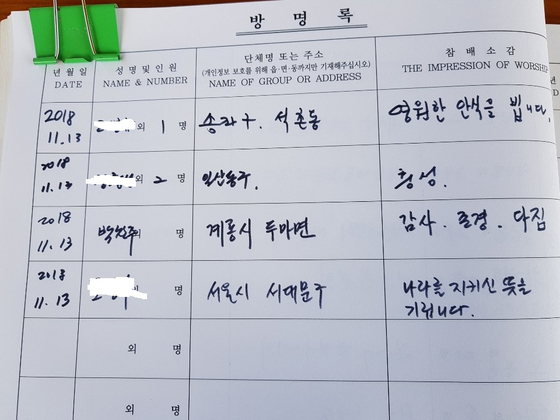 방 명 록
년 월 일
DATE
성 명 및 인 원
NAME & NUMBER
단체명 또는 주소
(개인정보 보호를 위해 읍·면·동까지만 기재해주십시오)
NAME OF GROUP OR ADDRESS
참 배 소 감
THE IMPRESSION OF WORSHIP
2018
11.13
외 1 명
송파구. 석촌동
영원한 안식을 빕니다.
2018
11.13
외 2 명
일산동구.
2018
11.13
외 명
계룡시 두마면
감사. 존경. 다짐
2018
11.13
명
서울시 서대문구
나라를 지키신 뜻을
기립니다.
외 명
외 명